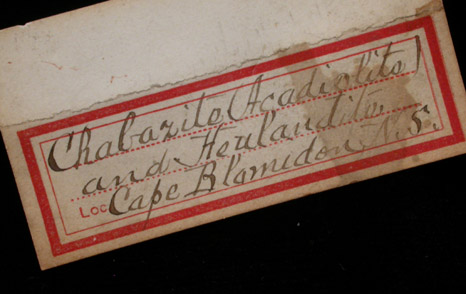 Chabazite (Acadiolite)
and Heulandite
Loc Cape Blomidon N.S.